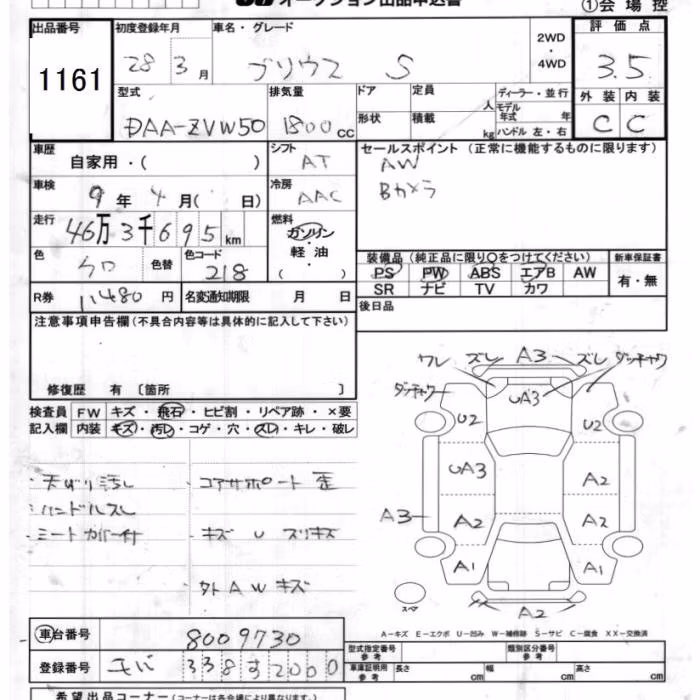 オークション出品申込書
①会場控
出品番号 初度登録年月 車名・グレード 2WD・4WD 評価点
1161 28 3月 プリウス S 3.5
型式 排気量 ドア 定員 人 ディーラー・並行 外装 内装
DAA-ZVW50 1800cc 形状 積載 kg モデル年式 年 ハンドル 左・右 C C
車歴 自家用・( ) シフト AT セールスポイント (正常に機能するものに限ります)
AW
Bカメラ
車検 9年4月( 日) 冷房 AAC
走行 46万3千695km 燃料 ガソリン・軽油・( )
色 クロ 色替 色コード 218
装備品(純正品に限り○をつけてください) 新車保証書
PS PW ABS エアB AW 有・無
SR ナビ TV カワ
R券 11480円 名変通知期限 月 日 後日品
注意事項申告欄(不具合内容等は具体的に記入して下さい)
修復歴 有 〔箇所 〕
検査員記入欄 FW キズ・飛石・ヒビ割・リペア跡・×要
内装 キズ・汚レ・コゲ・穴・スレ・キレ・破レ
・天ばり汚レ ・コアサポート歪
・ハンドルスレ
・シートカバー付 ・キズ U スリキズ
・外AWキズ
ワレ ズレ A3 ズレ ダッチャク
ダッチャク UA3
U2 U2
UA3 A2
A3 A2 A2
A1 A1
スペア A2
A-キズ E-エクボ U-凹み W-補修跡 S-サビ C-腐食 XX-交換済
車台番号 8009730
登録番号 338す2000
型式指定番号 参考 類別区分番号 参考
車庫証明用 参考 長さ cm 幅 cm 高さ cm
希望出品コーナー(コーナーは各会場により異なります。)